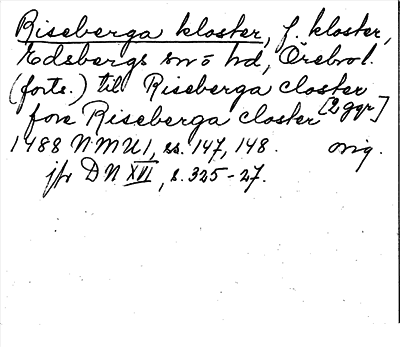 Riseberga kloster, f. kloster,
Edsbergs sn o hd, Örebro l.
(forts.) til Riseberga closter
fore Riseberga closter [2 ggr]
1488 NMU1, ss. 147, 148. orig.
jfr DN XVI, s. 325-27.